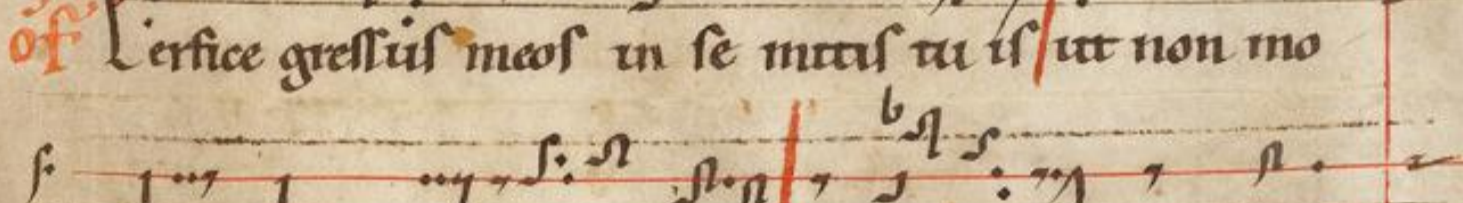 of Perfice gressus meos in se mitis tu is ut non mo
b